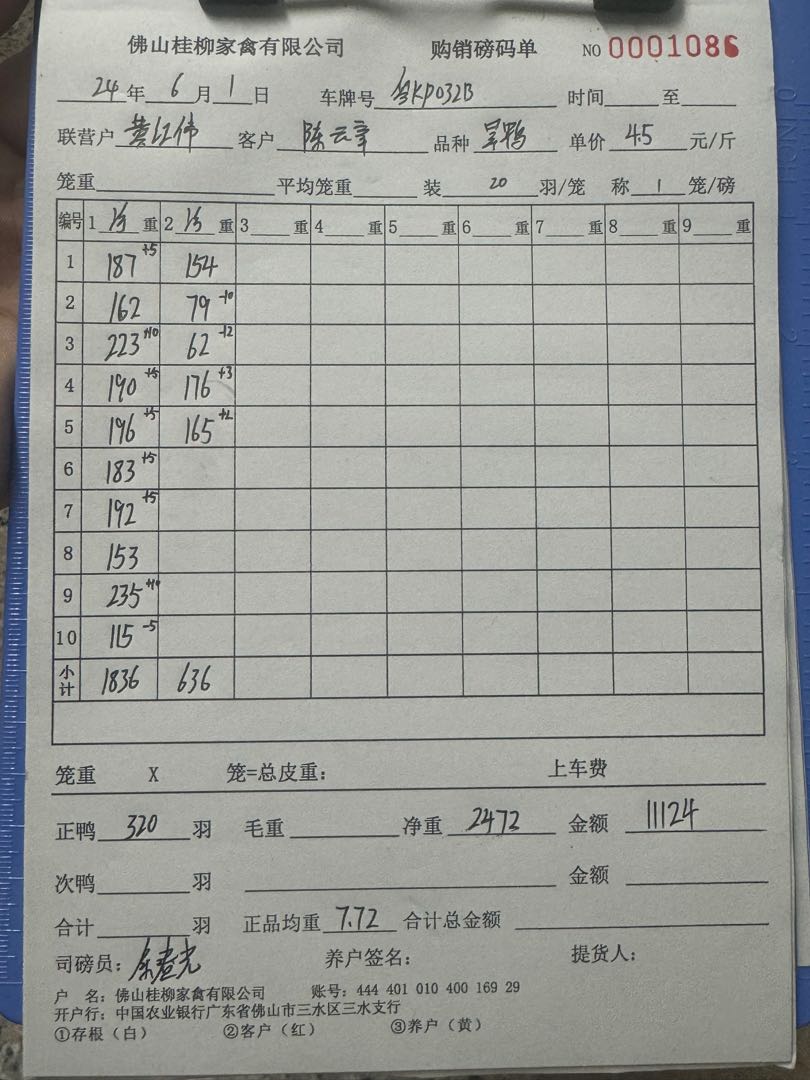 佛山桂柳家禽有限公司 购销磅码单 NO 0001086
24年6月1日 车牌号 粤KP032B 时间 至
联营户 黄江伟 客户 陈云章 品种 旱鸭 单价 4.5 元/斤
笼重 平均笼重 装 20 羽/笼 称 1 笼/磅
编号 1 重 2 重 3 重 4 重 5 重 6 重 7 重 8 重 9 重
1 187 +5 154
2 162 79 -10
3 223 +10 62 -12
4 190 +5 176 +3
5 196 +5 165 +2
6 183 +5
7 192 +5
8 153
9 235 +10
10 115 -5
小计 1836 636
笼重 X 笼=总皮重: 上车费
正鸭 320 羽 毛重 净重 2472 金额 11124
次鸭 羽 金额
合计 羽 正品均重 7.72 合计总金额
司磅员: 养户签名: 提货人:
户 名: 佛山桂柳家禽有限公司 账号: 444 401 010 400 169 29
开户行: 中国农业银行广东省佛山市三水区三水支行
①存根(白) ②客户(红) ③养户(黄)